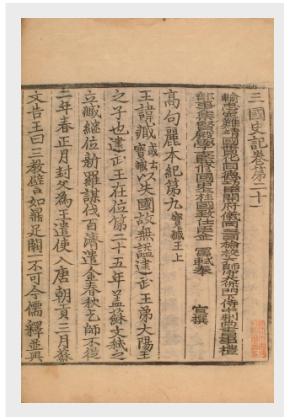 三國史記卷第二十一
輸忠定難靖國賛化同德功臣開府儀同三司檢校太師守太保門下侍中判尚書事兼
吏禮部事集賢殿大學士監修國史上柱國致仕臣金富軾奉 宣撰
高句麗本紀第九 寳臧王上
王諱臧 或云寳臧 以失國故無謚建武王弟大陽王
之子也建武王在位第二十五年盖蘇文弑之
立臧繼位新羅謀伐百濟遣金春秋乞師不從
二年春正月封父為王遣使入唐朝貢三月蘇
文告王曰三教譬如鼎足闕一不可今儒釋並興